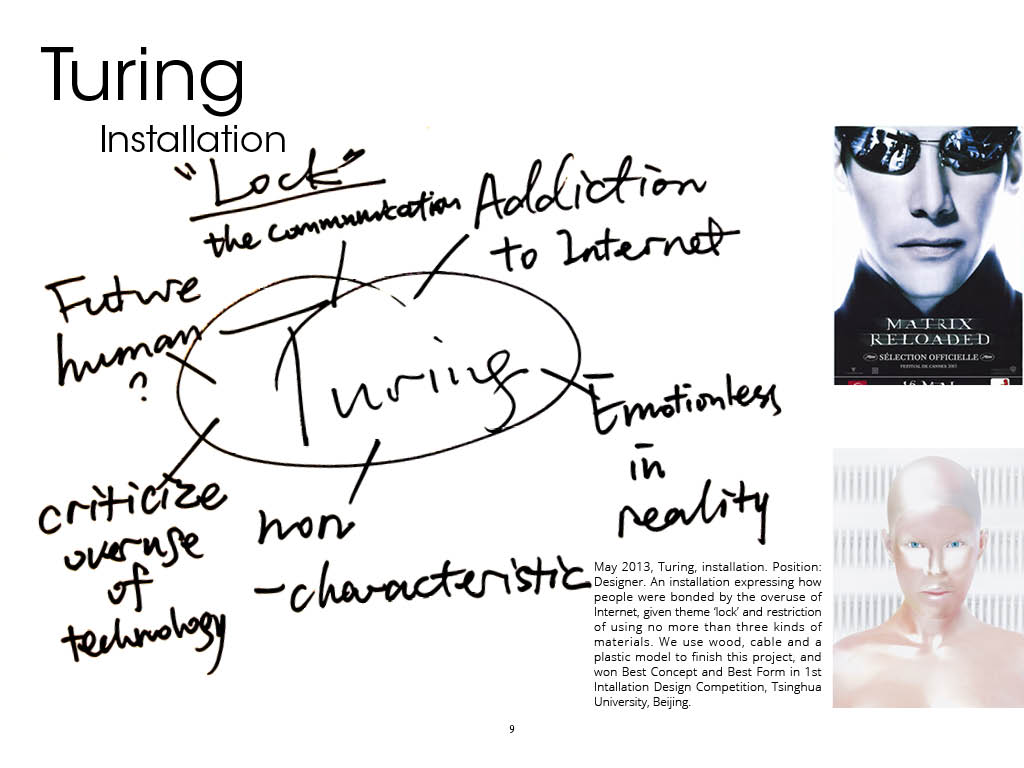 Turing
Installation
"Lock"
the communication
Addiction
to Internet
Future
human
?
Turing
Emotionless
in
reality
criticize
overuse
of
technology
non
-characteristic
MATRIX
RELOADED
SÉLECTION OFFICIELLE
FESTIVAL DE CANNES 2003
16 MAI
May 2013, Turing, installation. Position:
Designer. An installation expressing how
people were bonded by the overuse of
Internet, given theme ‘lock’ and restriction
of using no more than three kinds of
materials. We use wood, cable and a
plastic model to finish this project, and
won Best Concept and Best Form in 1st
Intallation Design Competition, Tsinghua
University, Beijing.
9